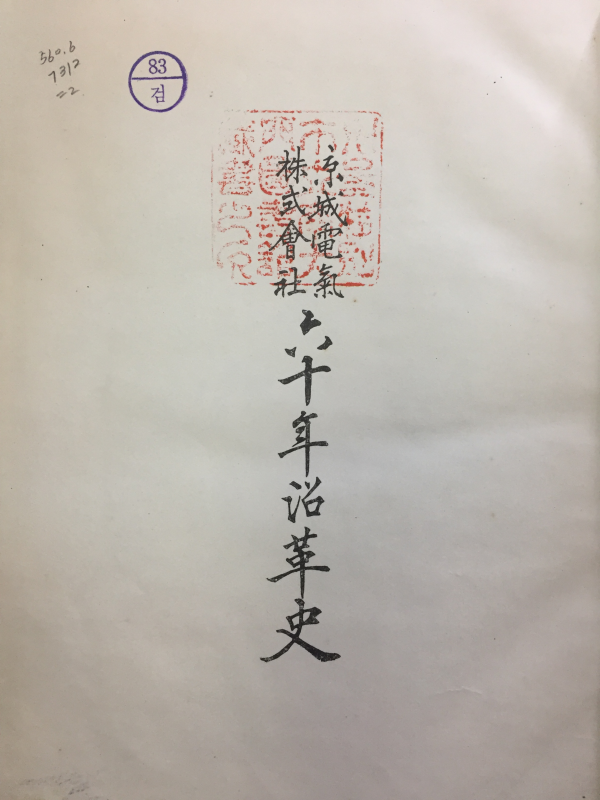 560.6
83
검
京城電氣
株式會社
六十年沿革史